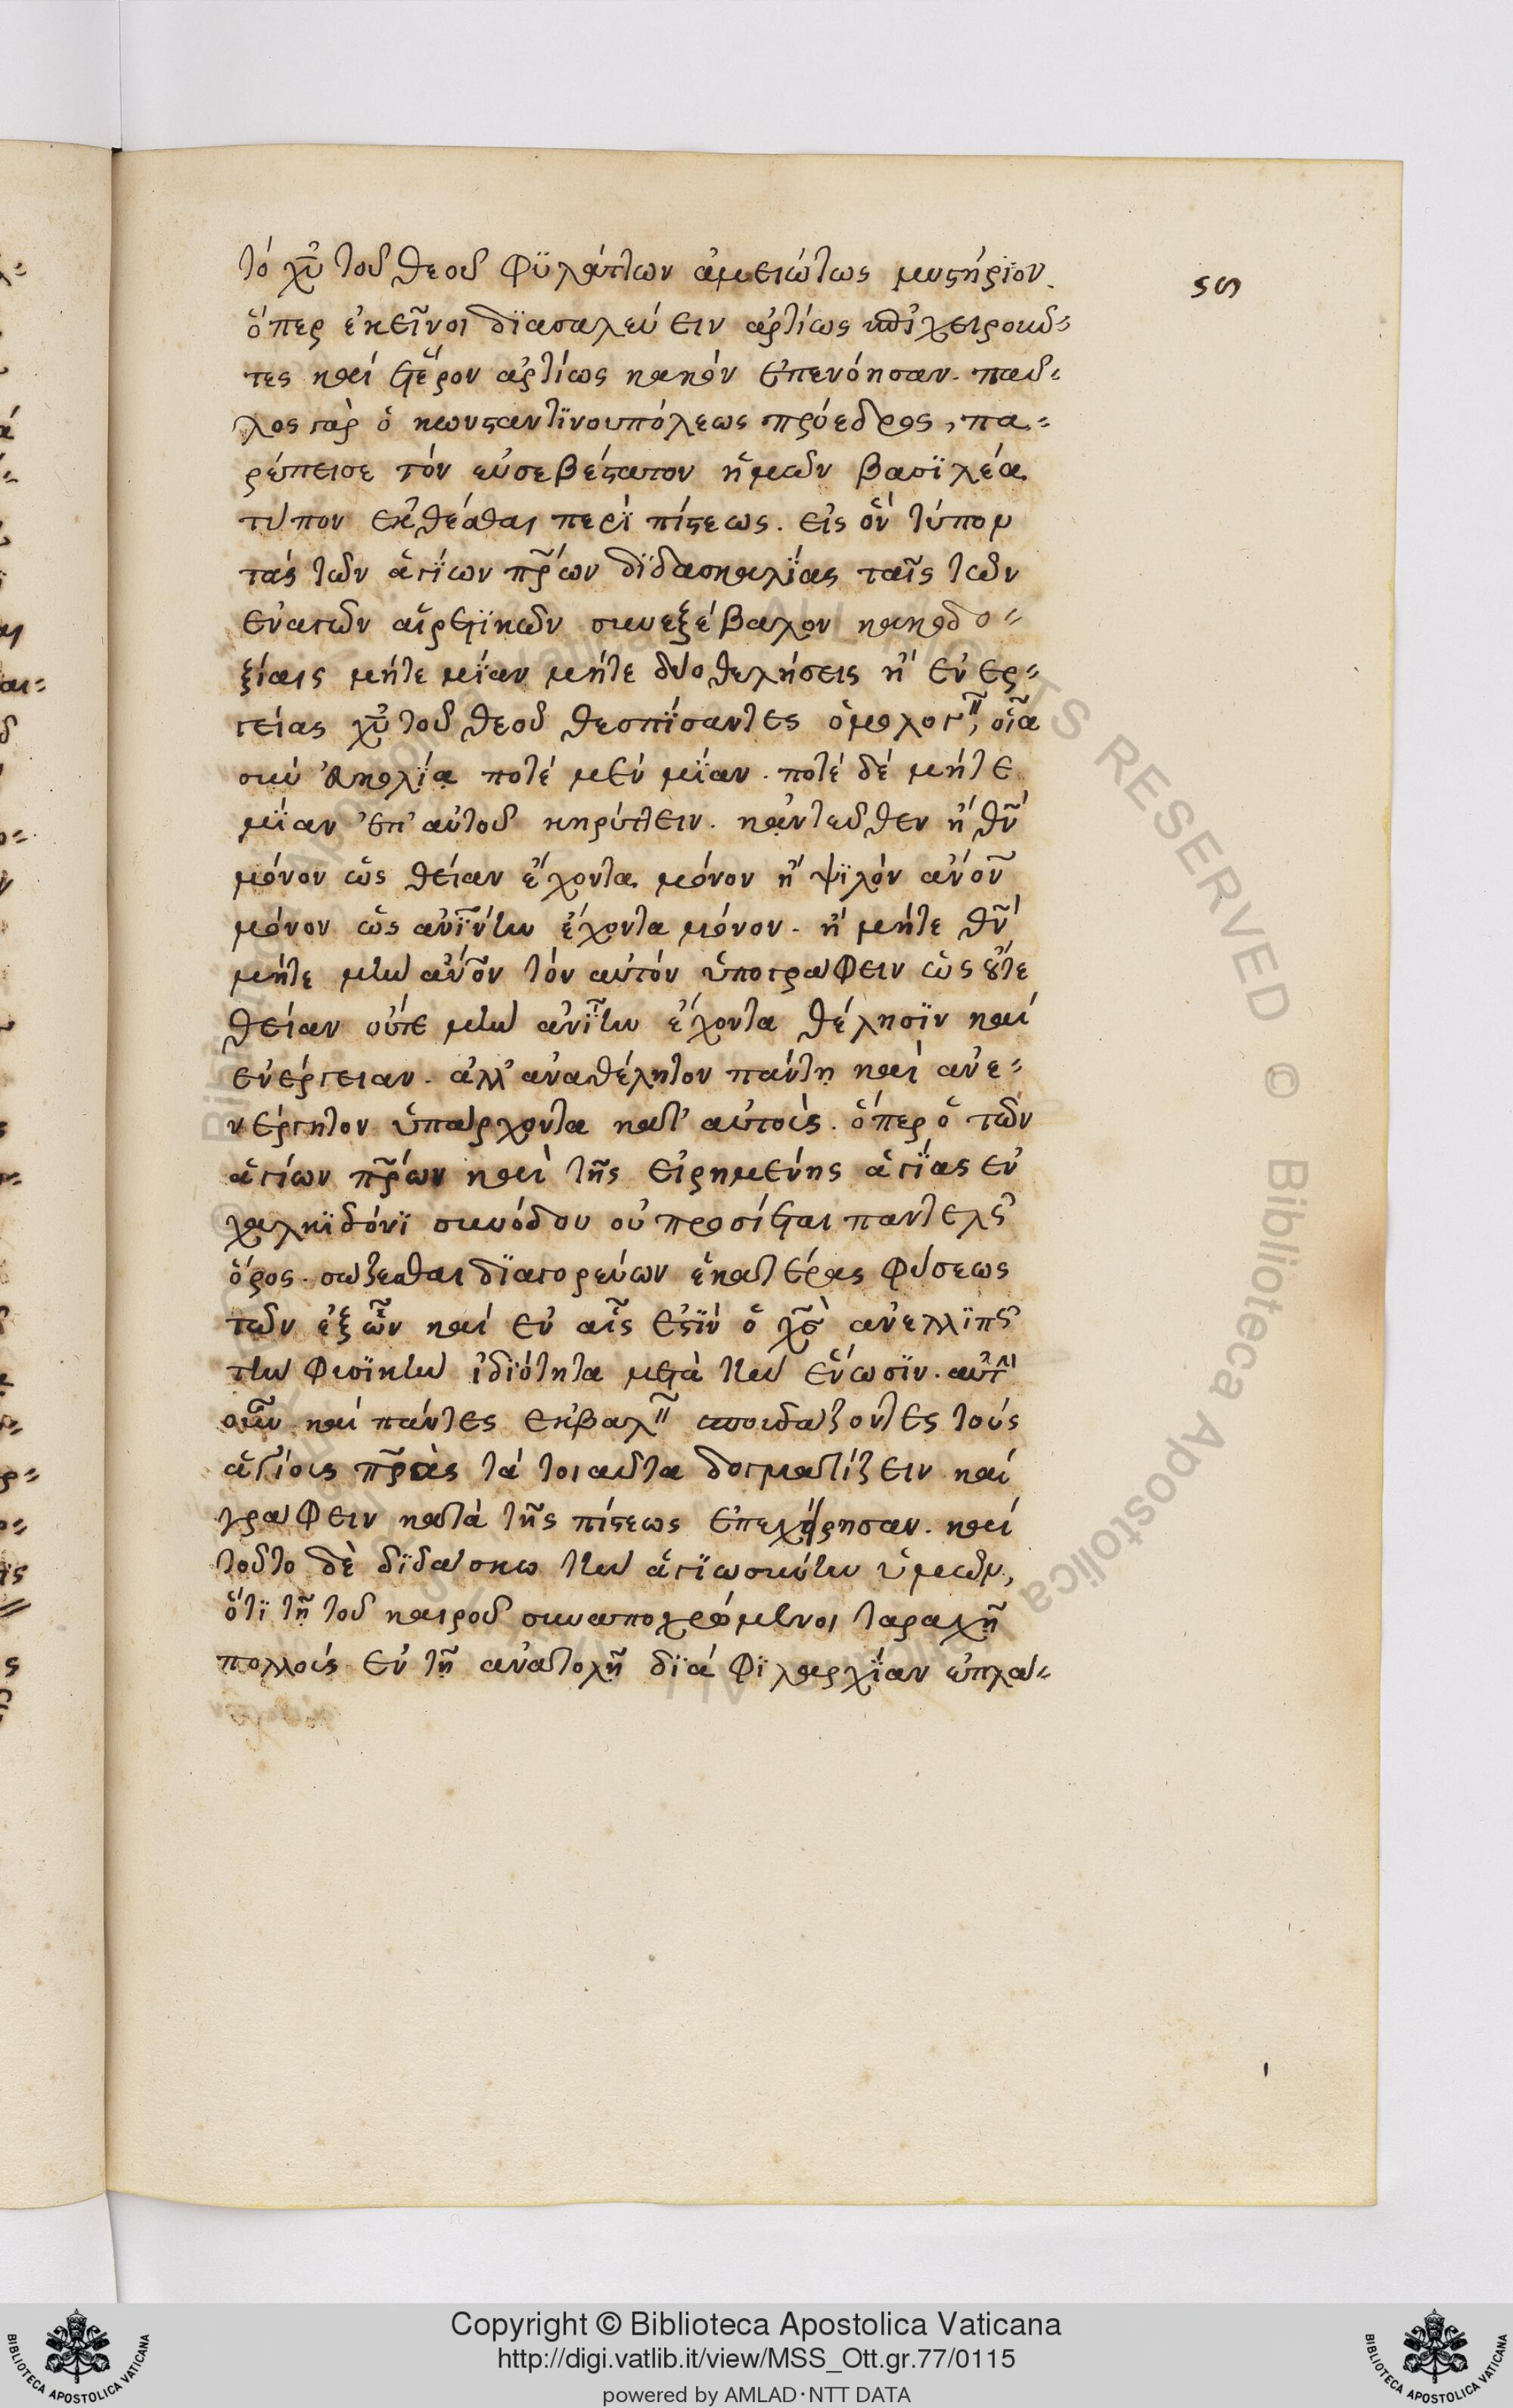 τὸ χῦ τοῦ θεοῦ φϋλάττων ἀμειώτως μυστήριον.
ςς
ὅπερ ἐκεῖνοι διασαλεύειν ἀρτίως ἐπιχειροῦν=
τες καὶ ἕτερον ἀρτίως κακὸν ἐπενόησαν. παῦ=
λος γὰρ ὁ κωνσταντϊνουπόλεως πρόεδρος, πα=
ρέπεισε τὸν εὐσεβέστατον ἡμῶν βασϊλέα
τύπον ἐκθέσθαι περὶ πίστεως. εἰς ὃν τύπον
τὰς τῶν ἁγίων πρων διδασκαλϊας ταῖς τῶν
ἐναγῶν αἱρετϊκῶν συνεξέβαλον κακοδο=
ξίαις μήτε μίαν μήτε δύο θελήσεις ἢ ἐνερ=
γείας χῦ τοῦ θεοῦ θεσπίσαντες ὁμολογ, οἷα
σὺν ἀκολϊα ποτέ μὲν μίαν. ποτέ δέ μήτε
μίαν ἐπ' αὐτοῦ κηρύττειν. κἀντεῦθεν ἢ θν
μόνον ὡς θείαν ἔχοντα μόνον ἢ ψϊλὸν ἀνον
μόνον ὡς ἀνΐνην ἔχοντα μόνον. ἢ μήτε θν
μήτε μὴν ἀνον τὸν αὐτὸν ὑπογράφειν ὡς οὔτε
θείαν οὔτε μὴν ἀνΐνην ἔχοντα θέλησϊν καὶ
ἐνέργειαν. ἀλλ' ἀναθέλητον πάντη καὶ ἀνε=
νέργητον ὑπάρχοντα κατ' αὐτούς. ὅπερ ὁ τῶν
ἁγίων πρων καὶ τῆς εἰρημένης ἁγίας ἐν
χαλκϊδόνϊ συνόδου οὐ προσίεται παντελς
ὅρος. σώζεσθαι διαγορεύων ἑκατέρας φύσεως
τῶν ἐξ ὧν καὶ ἐν αἷς ἐστϊν ὁ χς ἀνελλϊπς
τὴν φυσϊκὴν ἰδιότητα μετὰ τὴν ἕνωσϊν. αὐτ
οὖν καὶ πάντες ἐκβαλ σπουδάζοντες τοὺς
ἁγίους πρας τὰ τοιαῦτα δογματίζειν καὶ
γράφειν κατὰ τῆς πίστεως ἐπεχήρησαν. καὶ
τοῦτο δὲ διδάσκω τὴν ἁγιωσύνην ὑμῶν,
ὅτϊ τῇ τοῦ καιροῦ συναποχρώμενοι ταραχῇ
πολλοὺς ἐν τῇ ἀνατολῇ διὰ φϊλαρχϊαν ἐπλα=
Copyright © Biblioteca Apostolica Vaticana
http://digi.vatlib.it/view/MSS_Ott.gr.77/0115
powered by AMLAD·NTT DATA